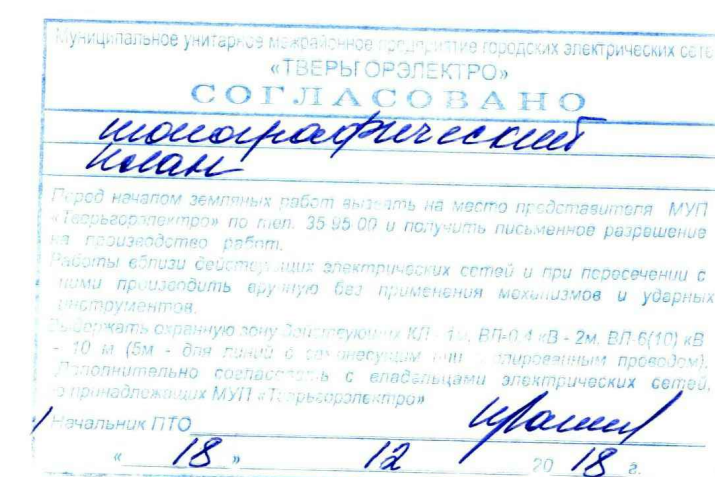 Муниципальное унитарное межрайонное предприятие городских электрических сете
«ТВЕРЬГОРЭЛЕКТРО»
СОГЛАСОВАНО
топографический
план
Перед началом земляных работ вызвать на место представителя МУП
«Тверьгорэлектро» по тел. 35 95 00 и получить письменное разрешение
на производство работ.
Работы вблизи действующих электрических сетей и при пересечении с
ними производить вручную без применения механизмов и ударных
инструментов.
Выдержать охранную зону действующих КЛ - 1м, ВЛ-0,4 кВ - 2м, ВЛ-6(10) кВ
- 10 м (5м - для линий с самонесущим или изолированным проводом).
Дополнительно согласовать с владельцами электрических сетей,
принадлежащих МУП «Тверьгорэлектро»
Начальник ПТО
« 18 » 12 20 18 г.